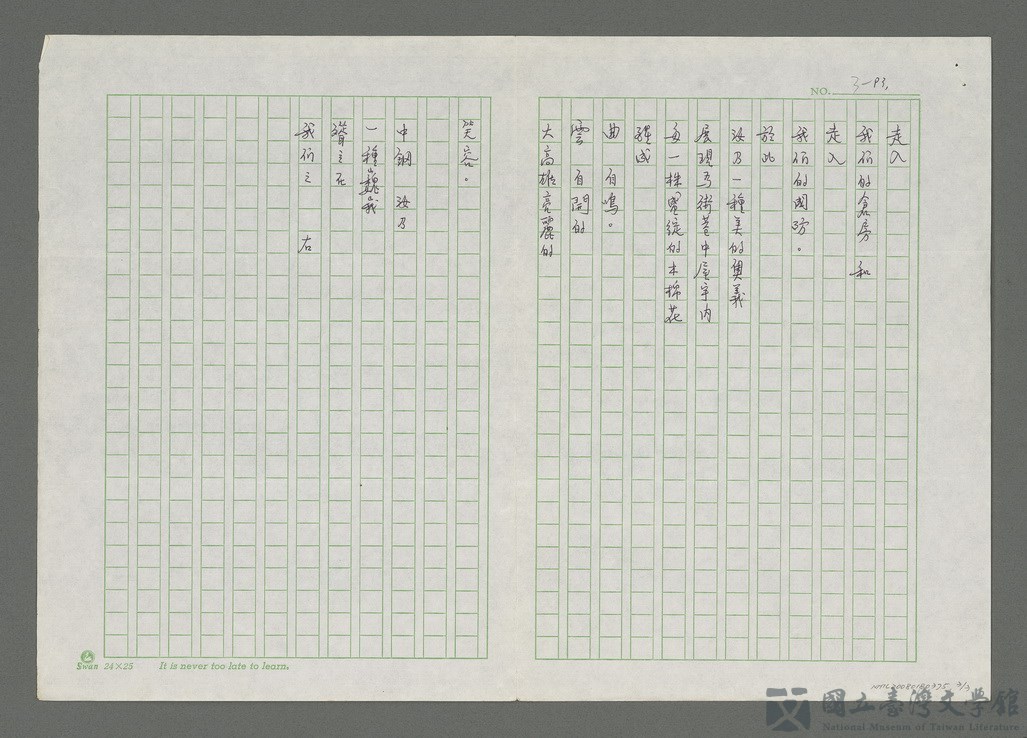 NO. 3-P3,
走入
我们的倉房 和
走入
我们的國防。
於此
汝乃一種美的奧義
展現为街巷中屋宇内
每一株盛綻的木棉花
譜成
曲 自鳴。
雲 自開的
大高雄亮麗的
笑容。
中鋼 汝乃
一種巍峩
聳立在
我们之 右
Swan 24×25 It is never too late to learn.
NMTL20080180375 3/3
國立臺灣文學館
National Museum of Taiwan Literature